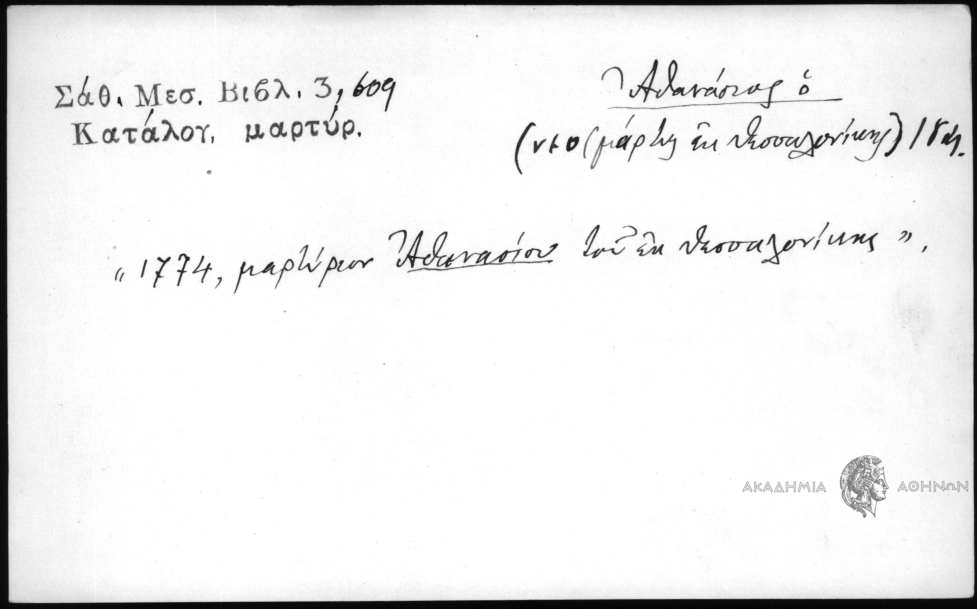 Σάθ. Μεσ. Βιβλ. 3, 609
Κατάλογ. μαρτύρ.
Ἀθανάσιος ὁ
(νεομάρτυς ἐκ Θεσσαλονίκης)
" 1774, μαρτύριον Ἀθανασίου τοῦ ἐκ Θεσσαλονίκης ".
ΑΚΑΔΗΜΙΑ ΑΘΗΝΩΝ